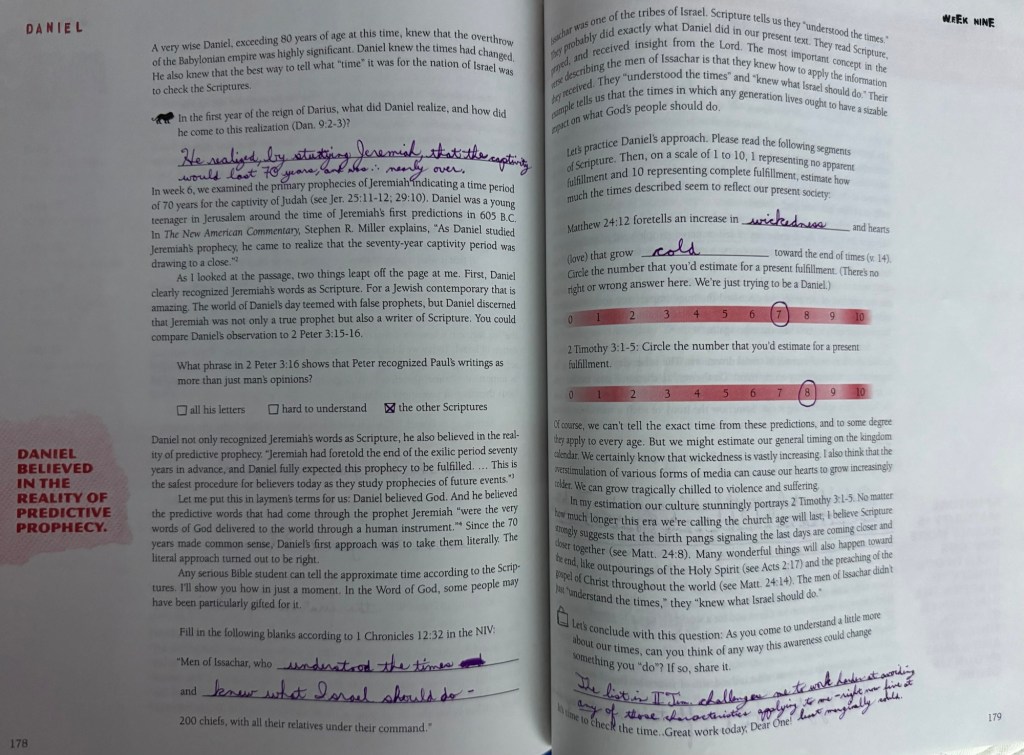 DANIEL
A very wise Daniel, exceeding 80 years of age at this time, knew that the overthrow
of the Babylonian empire was highly significant. Daniel knew the times had changed.
He also knew that the best way to tell what “time” it was for the nation of Israel was
to check the Scriptures.
In the first year of the reign of Darius, what did Daniel realize, and how did
he come to this realization (Dan. 9:2-3)?
He realized, by studying Jeremiah, that the captivity
would last 70 years, and was ∴ nearly over.
In week 6, we examined the primary prophecies of Jeremiah indicating a time period
of 70 years for the captivity of Judah (see Jer. 25:11-12; 29:10). Daniel was a young
teenager in Jerusalem around the time of Jeremiah’s first predictions in 605 B.C.
In The New American Commentary, Stephen R. Miller explains, “As Daniel studied
Jeremiah’s prophecy, he came to realize that the seventy-year captivity period was
drawing to a close.”2
As I looked at the passage, two things leapt off the page at me. First, Daniel
clearly recognized Jeremiah’s words as Scripture. For a Jewish contemporary that is
amazing. The world of Daniel’s day teemed with false prophets, but Daniel discerned
that Jeremiah was not only a true prophet but also a writer of Scripture. You could
compare Daniel’s observation to 2 Peter 3:15-16.
What phrase in 2 Peter 3:16 shows that Peter recognized Paul’s writings as
more than just man’s opinions?
☐ all his letters ☐ hard to understand ☒ the other Scriptures
Daniel not only recognized Jeremiah’s words as Scripture, he also believed in the real-
ity of predictive prophecy. “Jeremiah had foretold the end of the exilic period seventy
years in advance, and Daniel fully expected this prophecy to be fulfilled. … This is
the safest procedure for believers today as they study prophecies of future events.”3
Let me put this in laymen’s terms for us: Daniel believed God. And he believed
the predictive words that had come through the prophet Jeremiah “were the very
words of God delivered to the world through a human instrument.”4 Since the 70
years made common sense, Daniel’s first approach was to take them literally. The
literal approach turned out to be right.
Any serious Bible student can tell the approximate time according to the Scrip-
tures. I’ll show you how in just a moment. In the Word of God, some people may
have been particularly gifted for it.
DANIEL
BELIEVED
IN THE
REALITY OF
PREDICTIVE
PROPHECY.
Fill in the following blanks according to 1 Chronicles 12:32 in the NIV:
“Men of Issachar, who understood the times
and knew what Israel should do -
200 chiefs, with all their relatives under their command.”
178
WEEK NINE
Issachar was one of the tribes of Israel. Scripture tells us they “understood the times.”
They probably did exactly what Daniel did in our present text. They read Scripture,
prayed, and received insight from the Lord. The most important concept in the
verse describing the men of Issachar is that they knew how to apply the information
they received. They “understood the times” and “knew what Israel should do.” Their
example tells us that the times in which any generation lives ought to have a sizable
impact on what God’s people should do.
Let’s practice Daniel’s approach. Please read the following segments
of Scripture. Then, on a scale of 1 to 10, 1 representing no apparent
fulfillment and 10 representing complete fulfillment, estimate how
much the times described seem to reflect our present society:
Matthew 24:12 foretells an increase in wickedness and hearts
(love) that grow cold toward the end of times (v. 14).
Circle the number that you’d estimate for a present fulfillment. (There’s no
right or wrong answer here. We’re just trying to be a Daniel.)
0 1 2 3 4 5 6 7 8 9 10
2 Timothy 3:1-5: Circle the number that you’d estimate for a present
fulfillment.
0 1 2 3 4 5 6 7 8 9 10
Of course, we can’t tell the exact time from these predictions, and to some degree
they apply to every age. But we might estimate our general timing on the kingdom
calendar. We certainly know that wickedness is vastly increasing. I also think that the
overstimulation of various forms of media can cause our hearts to grow increasingly
colder. We can grow tragically chilled to violence and suffering.
In my estimation our culture stunningly portrays 2 Timothy 3:1-5. No matter
how much longer this era we’re calling the church age will last, I believe Scripture
strongly suggests that the birth pangs signaling the last days are coming closer and
closer together (see Matt. 24:8). Many wonderful things will also happen toward
the end, like outpourings of the Holy Spirit (see Acts 2:17) and the preaching of the
gospel of Christ throughout the world (see Matt. 24:14). The men of Issachar didn’t
just “understand the times,” they “knew what Israel should do.”
Let’s conclude with this question: As you come to understand a little more
about our times, can you think of any way this awareness could change
something you “do”? If so, share it.
The list in II Tim challenges me to work harder at avoiding
any of those characteristics applying to me - right now five at
least marginally
It’s time to check the time. Great work today, Dear One!
179